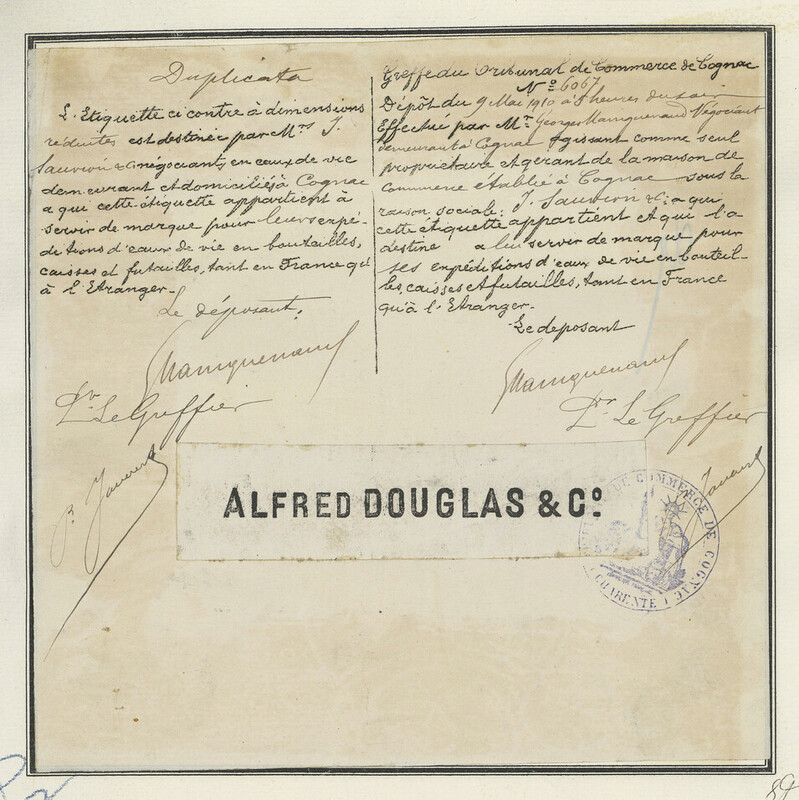 Duplicata
L'Etiquette ci contre à dimensions
réduites est destinée par Mrs J.
Sauvion & Co négociants en eaux de vie
demeurant et domiciliés à Cognac
a qui cette étiquette appartient à
servir de marque pour leurs expé-
ditions d'eaux de vie en bouteilles,
caisses et futailles, tant en France qu'
à l'Etranger.-
Le déposant,
Dr Le Greffier
Greffe du Tribunal de Commerce de Cognac
No 6067
Dépôt du 9 Mai 1910 à heures du soir
Effectué par Mr Georges Négociant
demeurant à Cognac agissant comme seul
propriétaire et gérant de la maison de
Commerce établie à Cognac sous la
raison sociale: J. Sauvion & Co a qui
cette étiquette appartient et qui l'a
destine a lui servir de marque pour
ses expéditions d'eaux de vie en bouteil-
les, caisses et futailles, tant en France
qu'à l'Etranger.-
Le deposant
Dr Le Greffier
ALFRED DOUGLAS & Co.
DE COMMERCE DE COGNAC
CHARENTE
89